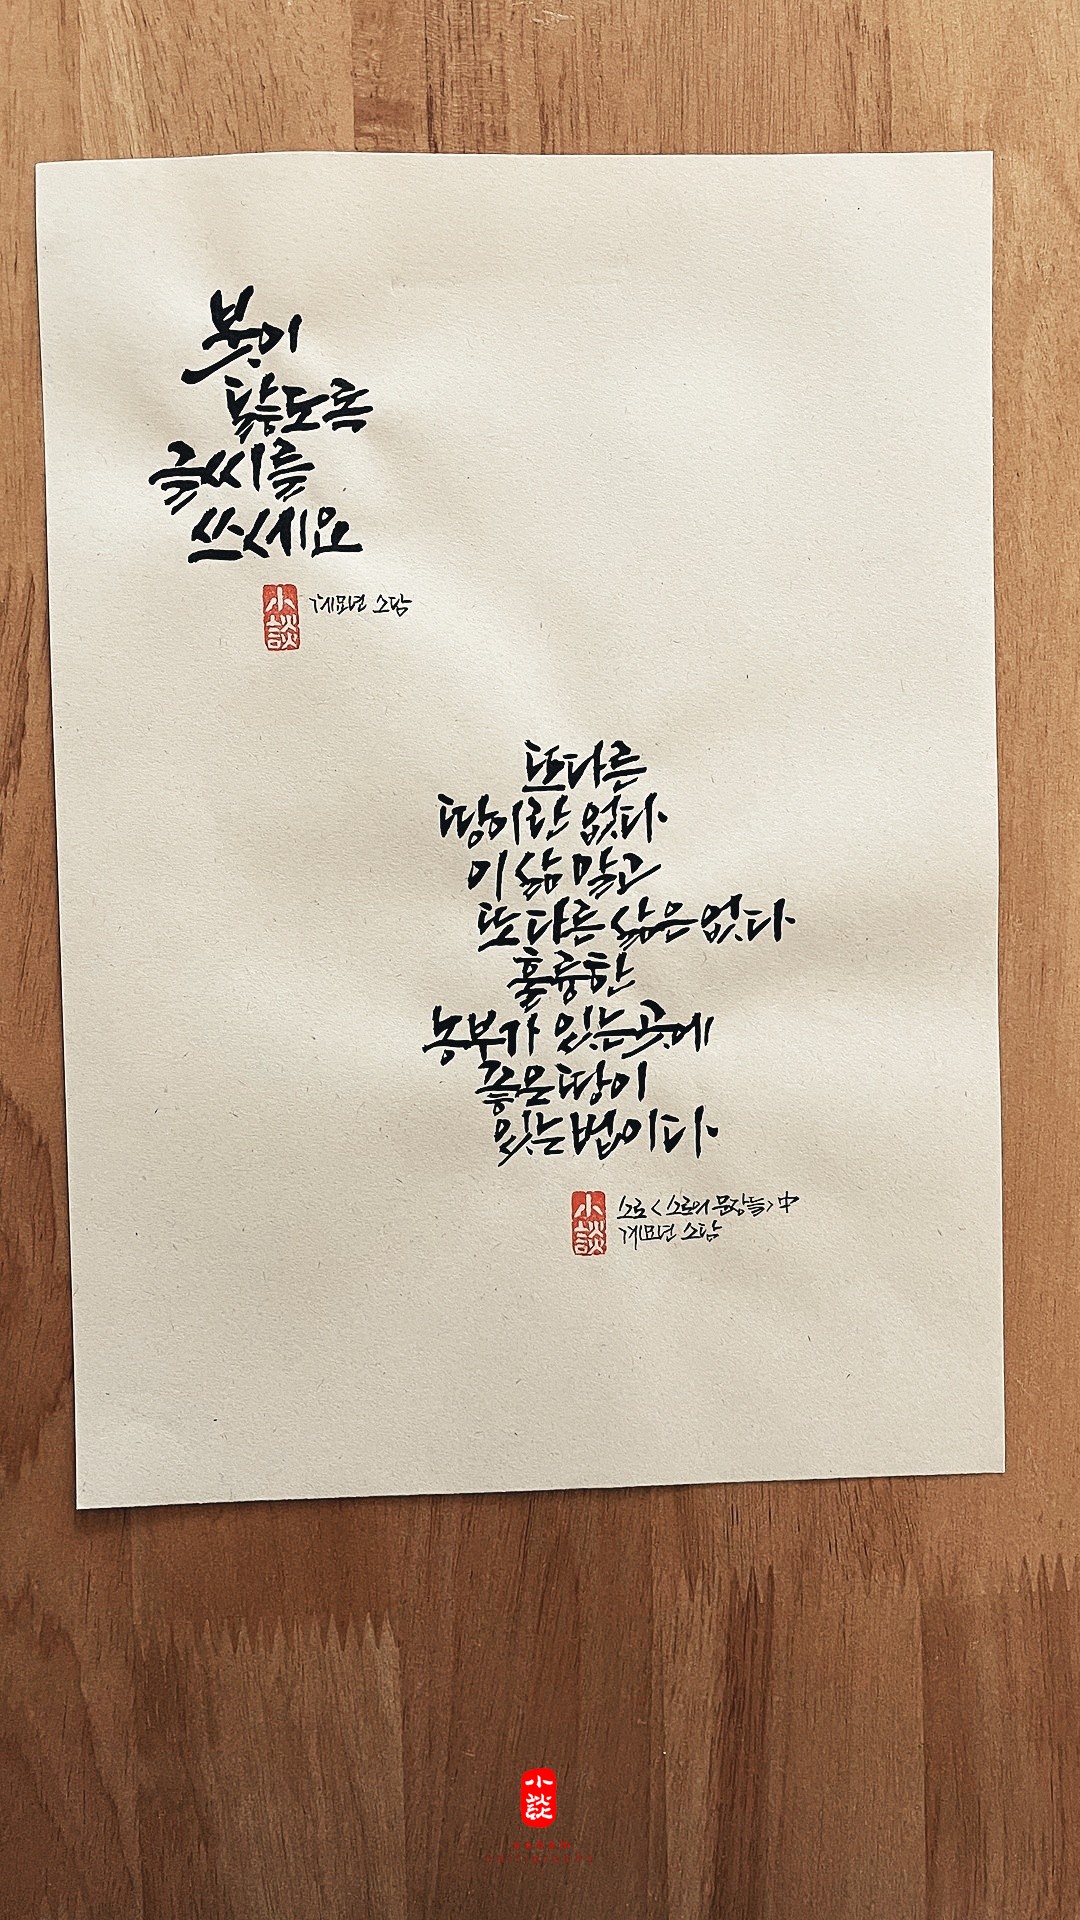 붓이
닳도록
글씨를
쓰세요
小談
계묘년 소담
또다른
땅이란 없다.
이 삶 말고
또 다른 삶은 없다.
훌륭한
농부가 있는 곳에
좋은 땅이
있는 법이다.
小談
소로 <소로의 문장들> 中
계묘년 소담
小談